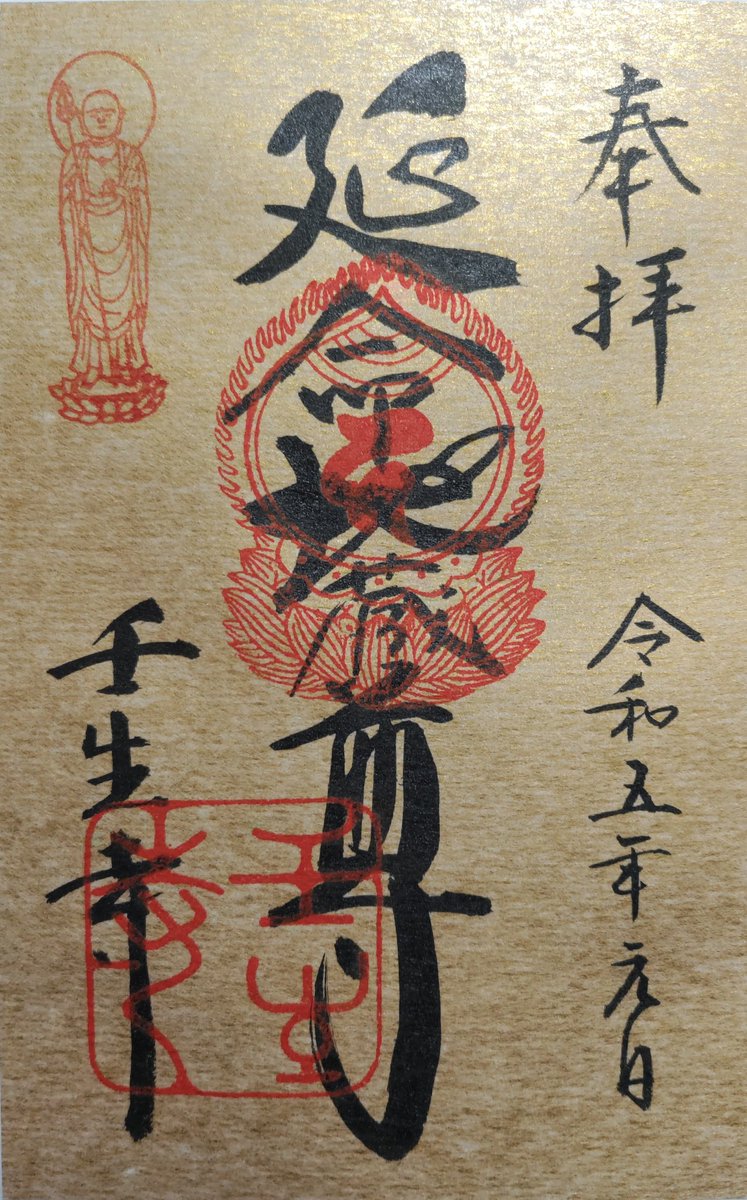 奉拝
令和五年元日
延命地蔵尊
壬生寺
壬生寺